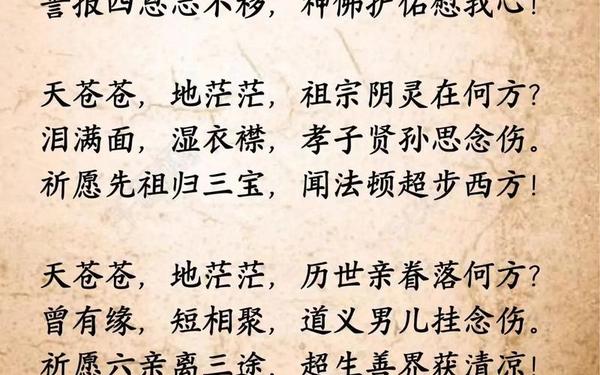 誓报四恩志不移，神佛护佑慰我心！
天苍苍，地茫茫，祖宗阴灵在何方？
泪满面，湿衣襟，孝子贤孙思念伤。
祈愿先祖归三宝，闻法顿超步西方！
天苍苍，地茫茫，历世亲眷落何方？
曾有缘，短相聚，道义男儿挂念伤。
祈愿六亲离三途，超生善界获清凉！